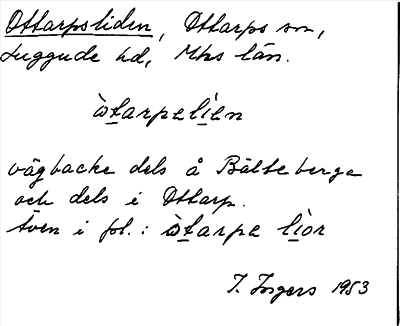 Ottarpsliden, Ottarps sn,
Luggude hd, Mhs län.
ὼt̲arpeli̲en
vägbacke dels å Bälteberga
och dels i Ottarp.
Även i fol.: ὼt̲arpe li̲or
I. Ingers 1953